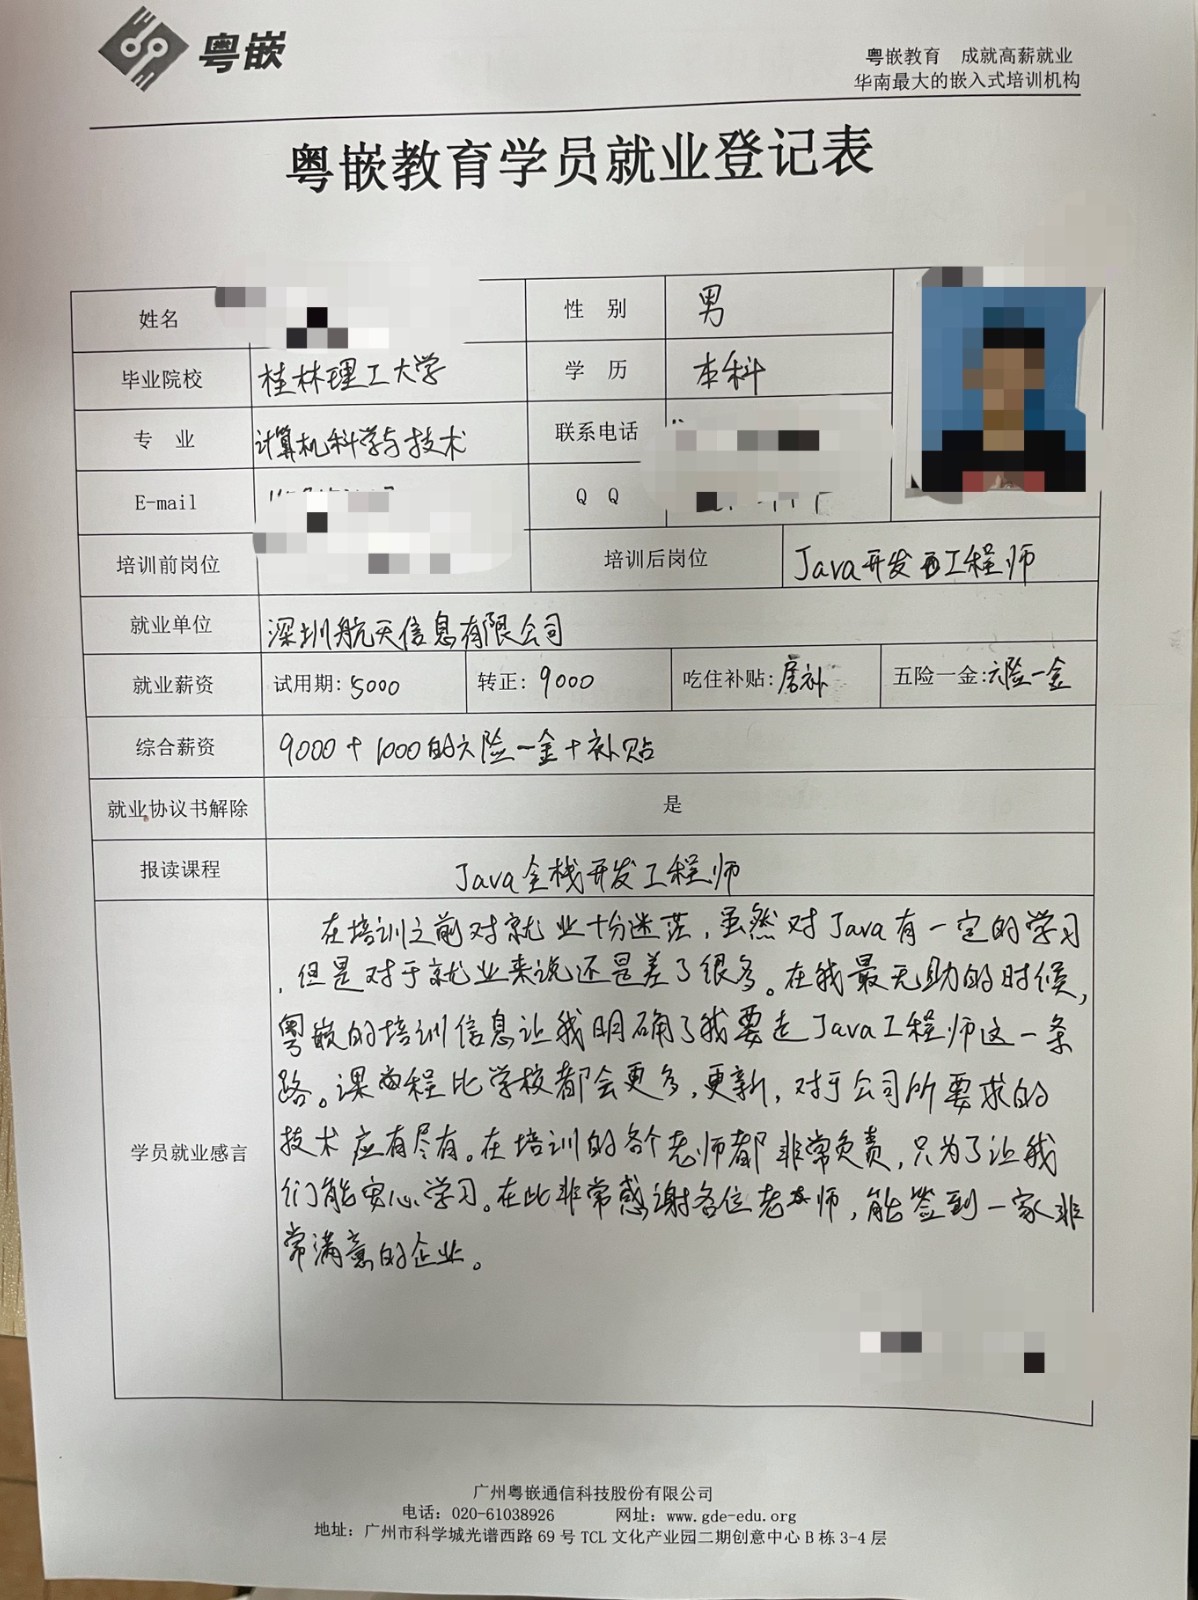 粤嵌
粤嵌教育 成就高薪就业
华南最大的嵌入式培训机构
粤嵌教育学员就业登记表
姓名 性 别 男
毕业院校 桂林理工大学 学 历 本科
专 业 计算机科学与技术 联系电话
E-mail Q Q
培训前岗位 培训后岗位 Java开发工程师
就业单位 深圳航天信息有限公司
就业薪资 试用期: 5000 转正: 9000 吃住补贴: 房补 五险一金: 六险一金
综合薪资 9000 + 1000的六险一金+补贴
就业协议书解除 是
报读课程 Java全栈开发工程师
在培训之前对就业十分迷茫，虽然对Java有一定的学习
，但是对于就业来说还是差了很多。在我最无助的时候，
粤嵌的培训信息让我明确了我要走Java工程师这一条
路。课程比学校都会更多，更新，对于公司所要求的
学员就业感言 技术应有尽有。在培训的各个老师都非常负责，只为了让我
们能安心学习。在此非常感谢各位老师，能签到一家非
常满意的企业。
广州粤嵌通信科技股份有限公司
电话：020-61038926 网址：www.gde-edu.org
地址：广州市科学城光谱西路 69 号 TCL 文化产业园二期创意中心 B 栋 3-4 层